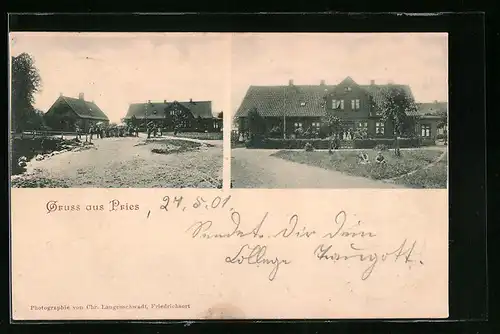 Gruss aus Pries
24.5.01.
Sendet Dir dein
College
Photographie von Chr. Langreuchwadt, Friedrichsort